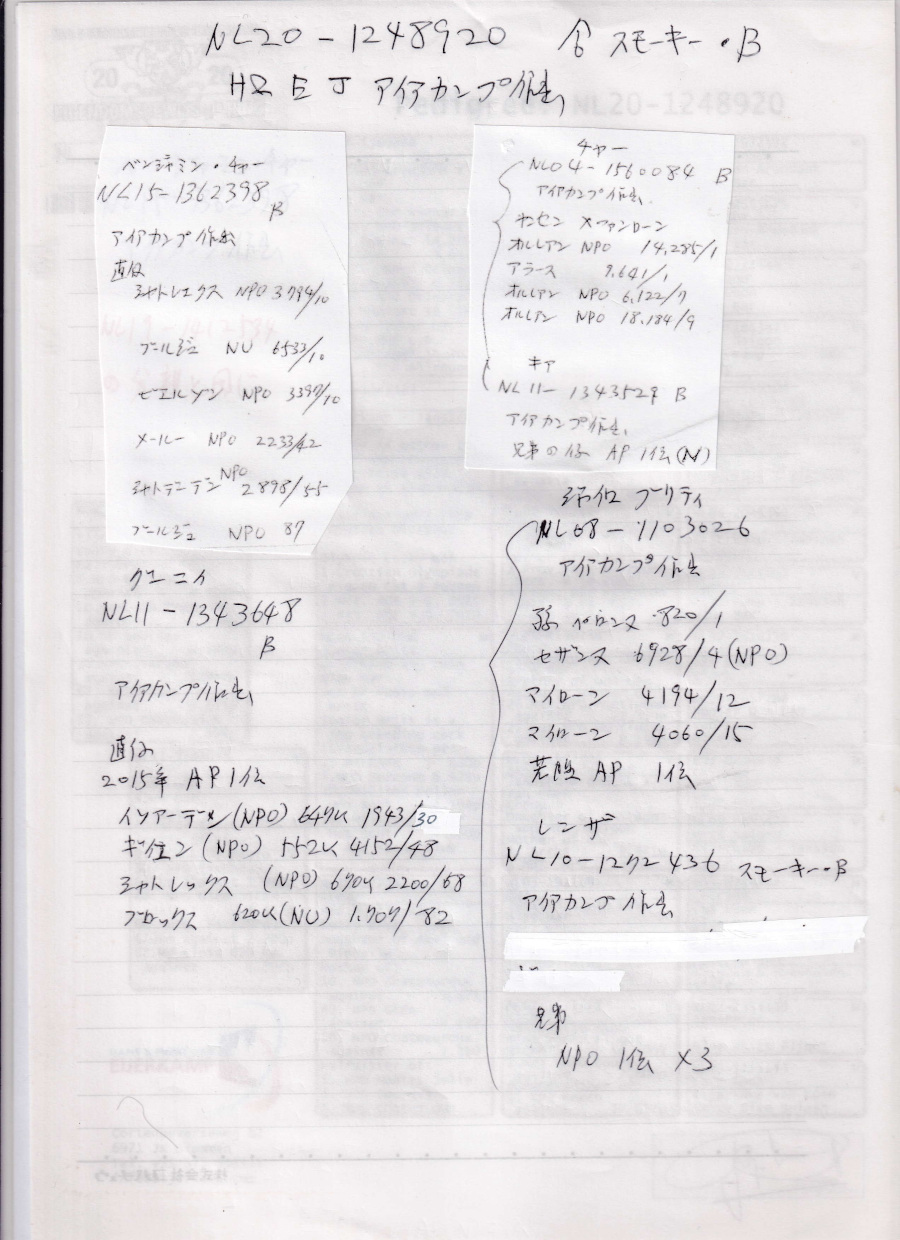 NL20-1248920 合 スモーキー・B
HR E J アイアカンプ作出
ベンジャミン・チャー
NL15-1362398
B
アイアカンプ作出
直仔
シャトレックス NPO 3794/10
ブールジュ NU 6533/10
ピエルゾン NPO 3397/10
メールー NPO 2233/42
シャトデュデン NPO 2898/55
ブールジュ NPO 87
クエニイ
NL11-1343648
B
アイアカンプ作出
直仔
2015年 AP 1位
(NPO) 647K 1943/30
ギイェン (NPO) 552K 4152/48
シャトレックス (NPO) 690K 2200/68
ブロックス 620K (NU) 1,707/82
チャー
NL04-1560084 B
アイアカンプ作出
ヤンセン Xファンローン
オルレアン NPO 14,285/1
アラース 9,641/1
オルレアン NPO 6,122/7
オルレアン NPO 18,184/9
キア
NL11-1343529 B
アイアカンプ作出
兄弟の仔 AP 1位 (N)
プリティ
NL08-1103026
アイアカンプ作出
孫 ペロンヌ 820/1
セザンヌ 6928/4 (NPO)
マイローン 4194/12
マイローン 4060/15
AP 1位
レンザ
NL10-1272436 スモーキー・B
アイアカンプ作出
兄弟
NPO 1位 X3